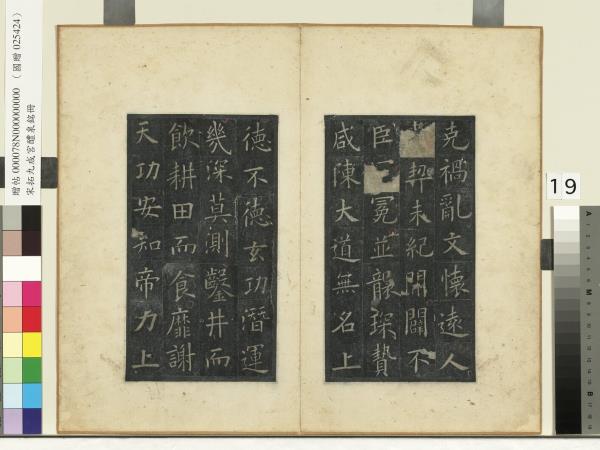 克禍亂文懷遠人
契未紀開闢不
臣冕並襲琛贄
咸陳大道無名上
德不德玄功潛運
幾深莫測鑿井而
飲耕田而食靡謝
天功安知帝力上
贈帖 000078N000000000 (國贈 025424)
宋拓九成宮醴泉銘冊
19
A
M
B